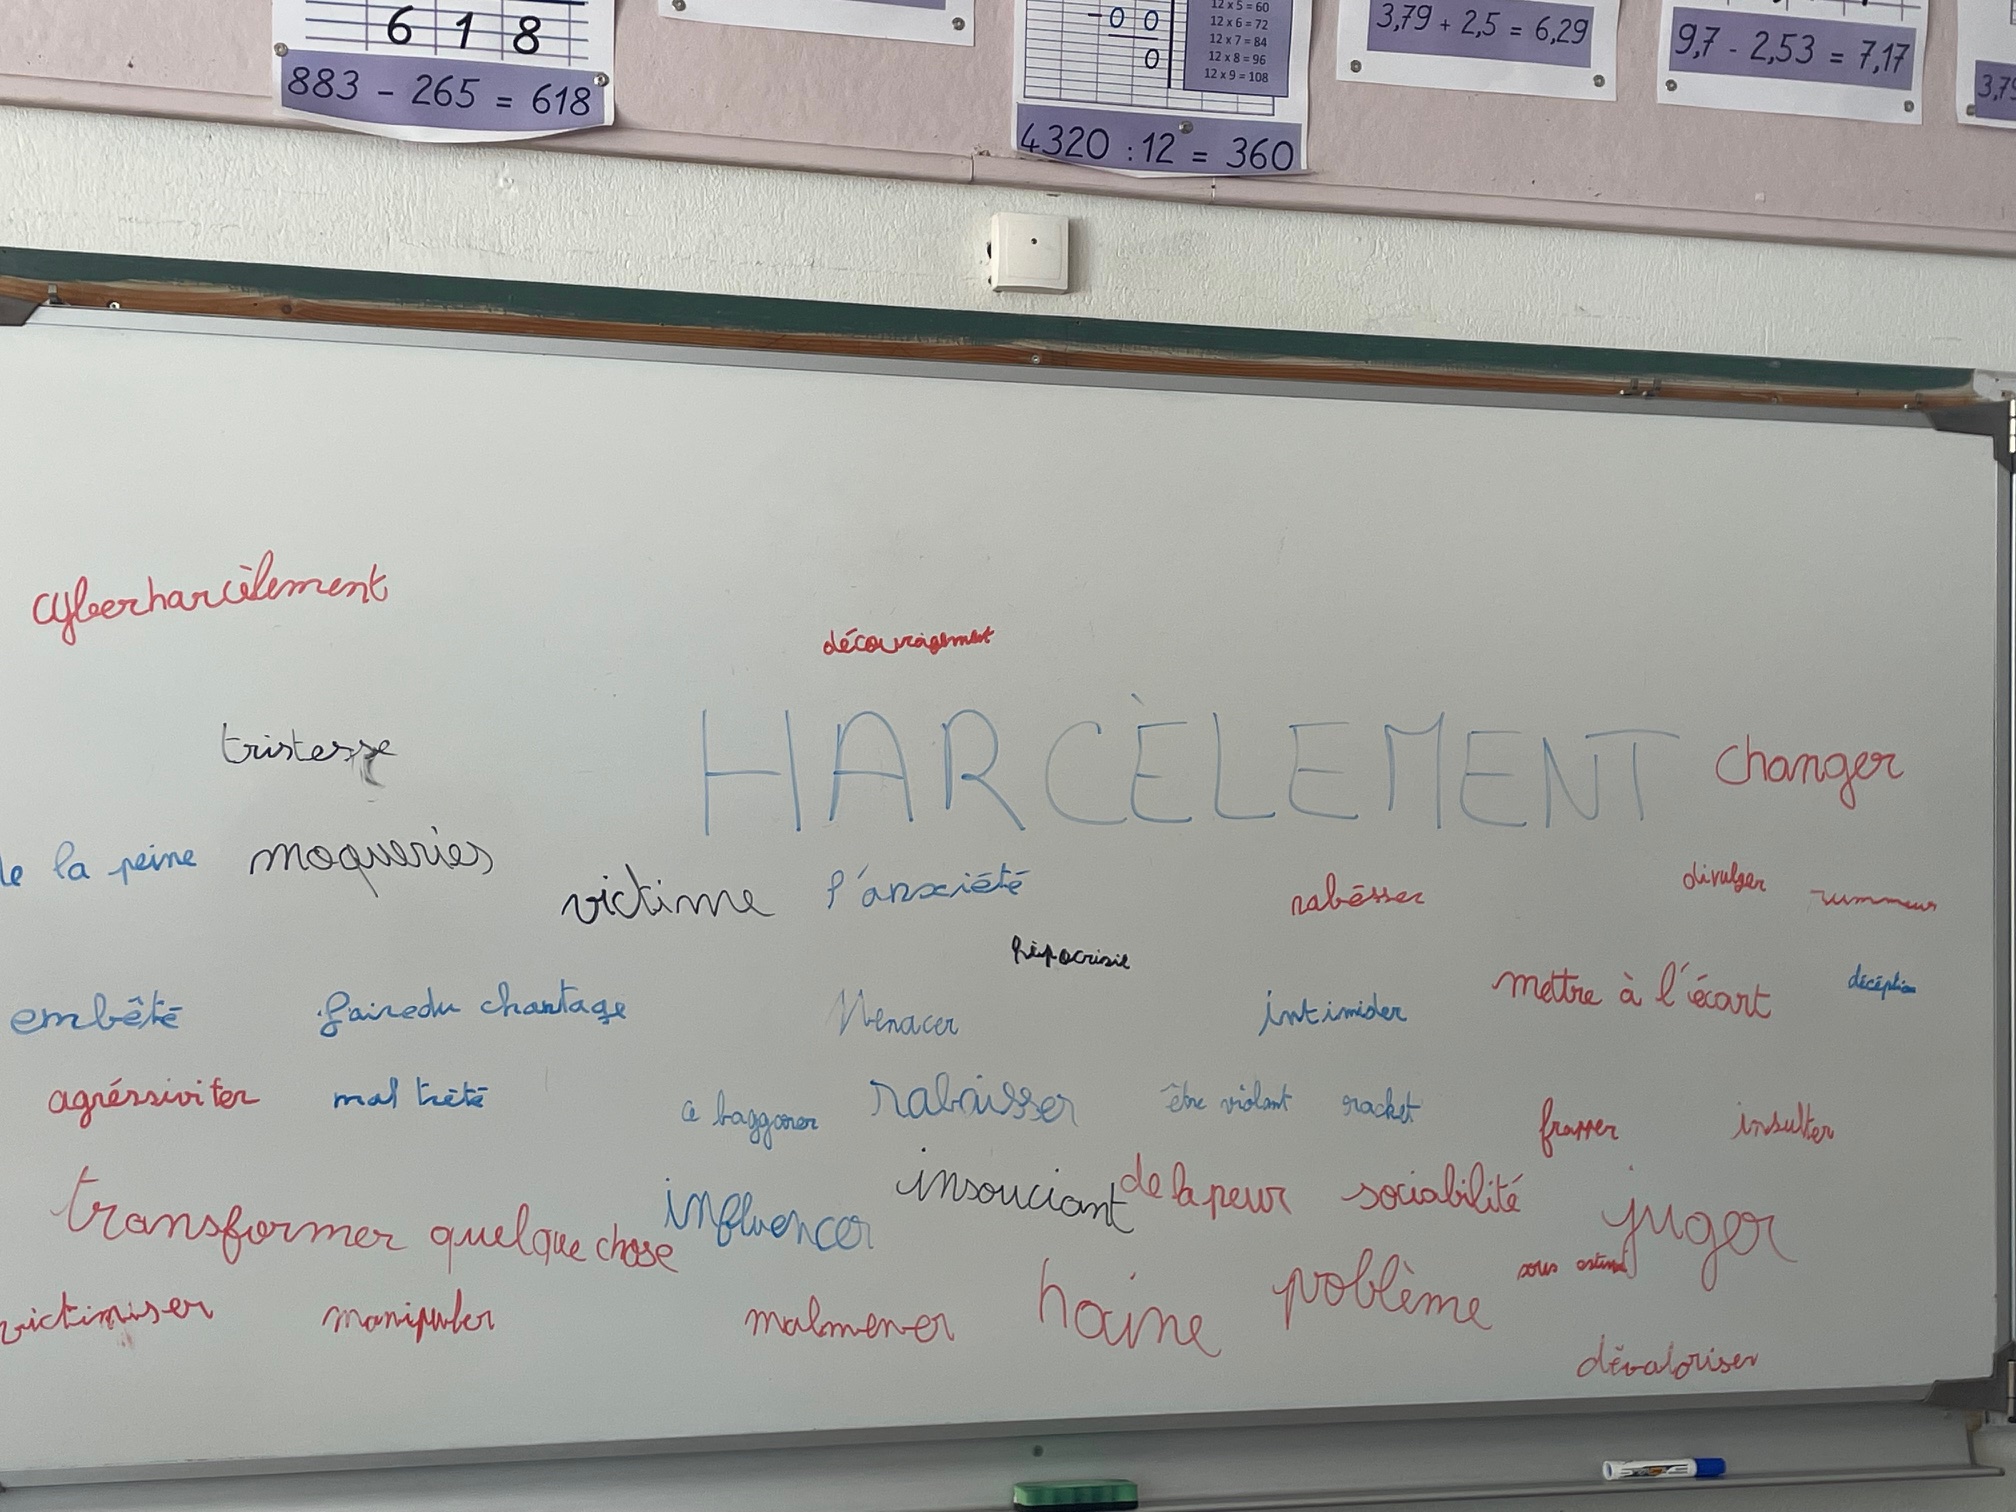 6 1 8
883 - 265 = 618
-0 0
0
12 x 5 = 60
12 x 6 = 72
12 x 7 = 84
12 x 8 = 96
12 x 9 = 108
4320 : 12 = 360
3,79 + 2,5 = 6,29
9,7 - 2,53 = 7,17
3,79
cyberharcèlement
découragement
tristesse
HARCÈLEMENT
changer
de la peine
moqueries
victime
l'anxiété
rabésser
divulger
rummeur
hèipocrisie
embêté
faire du chantage
Menacer
intimider
mettre à l'écart
décéption
agréssiviter
mal trèté
ce baggarer
rabaisser
être violant
racket
frapper
insulter
transformer quelque chose
influencer
insouciant
de la peur
sociabilité
juger
victimiser
manipuler
malmener
haine
poblème
sous estimé
dévaloriser